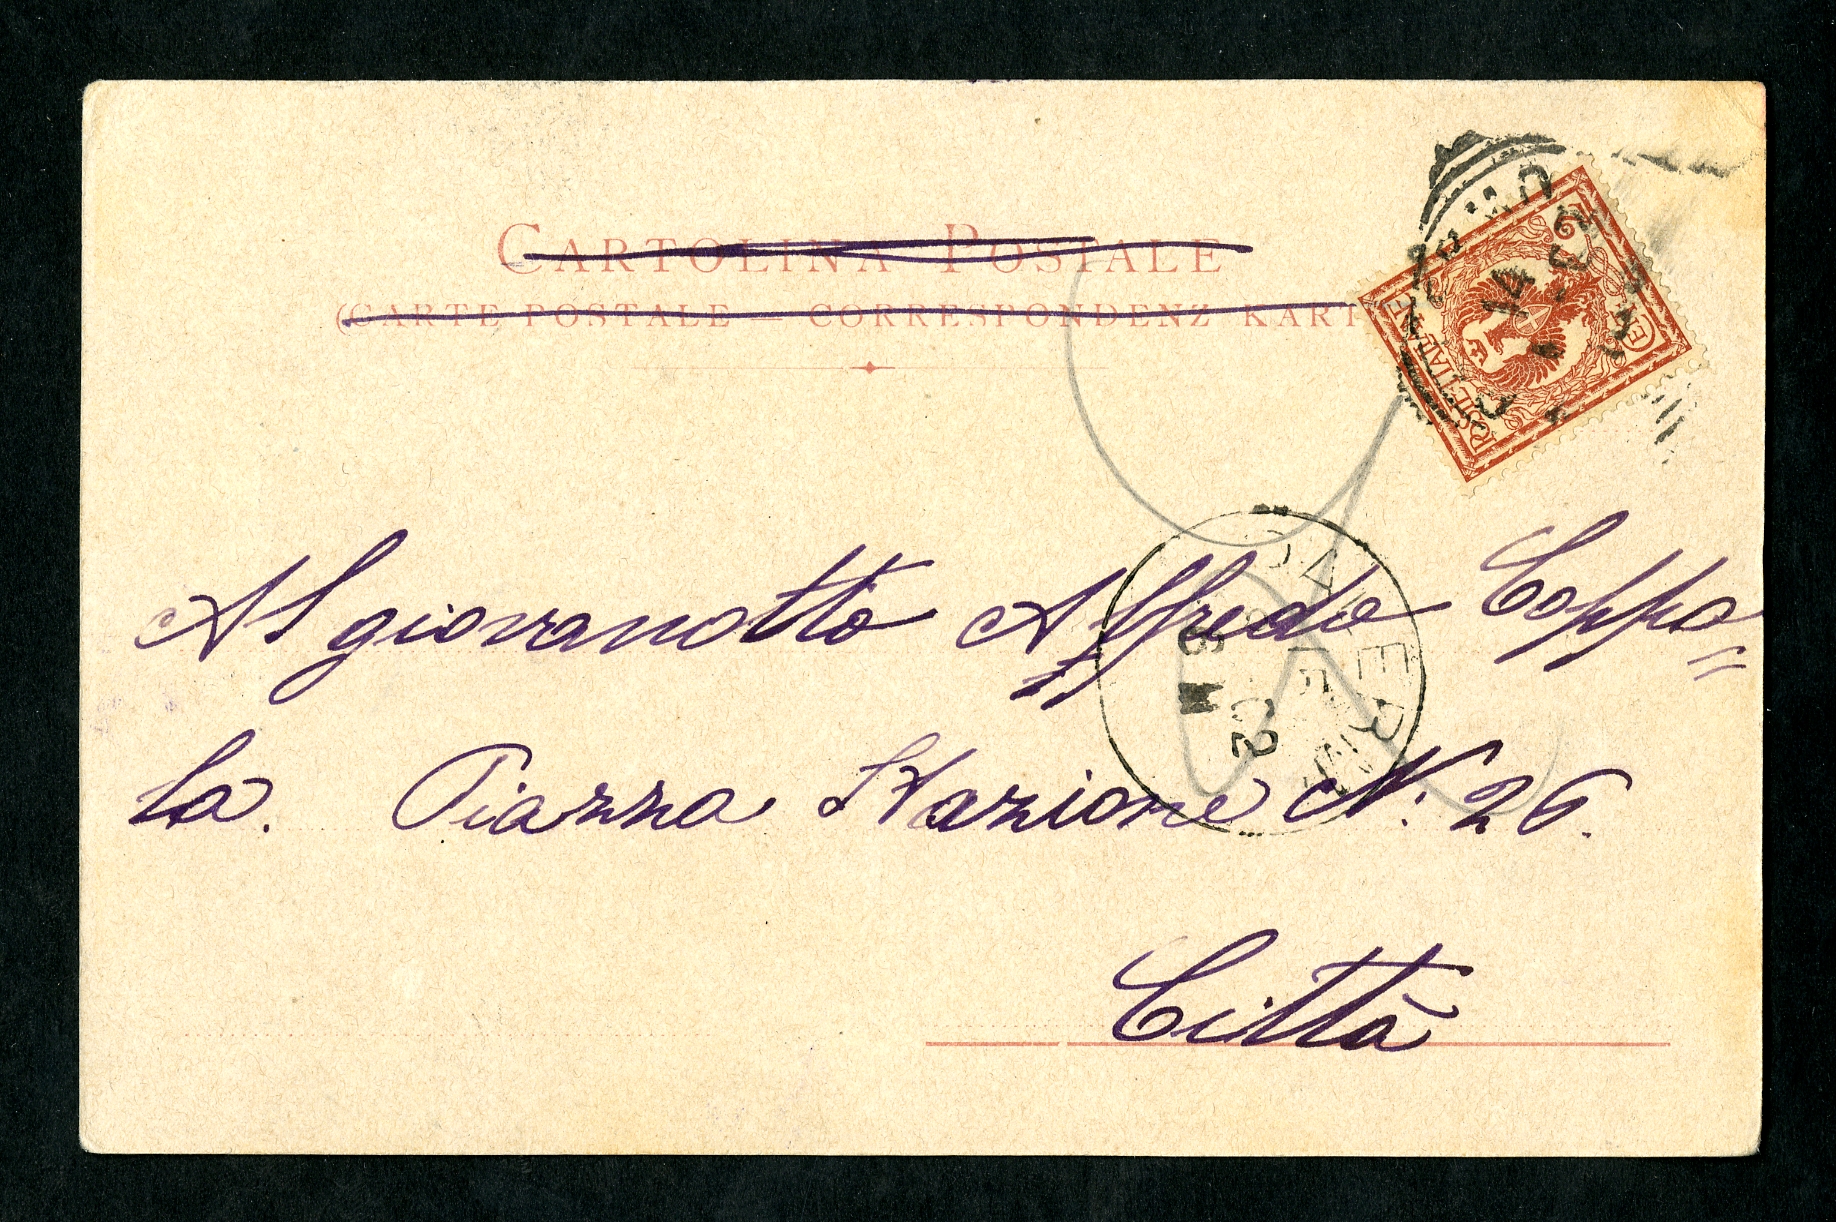 CARTOLINA POSTALE
(CARTE POSTALE — CORRESPONDENZ KART
POSTE ITALIANE
14
Al giovanotto Alfredo Coppo=
la. Piazza Stazione N: 26.
Città
02